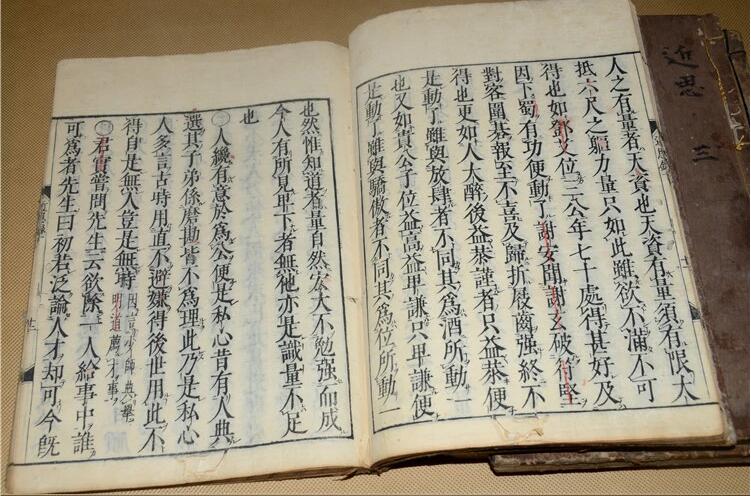 人之有量者天資也天資有量須有限大
抵六尺之軀力量只如此雖欲不滿不可
得也如鄧艾位三公年七十處得甚好及
因下蜀有功便動了謝安聞謝玄破符堅
對客圍棊報至不喜及歸折屐齒强終不
得也更如人大醉後益恭謹者只益恭便
是動了雖與放肆者不同其爲酒所動一
也又如貴公子位益高益卑謙只卑謙便
是動了雖與驕傲者不同其爲位所動一
也然惟知道者量自然宏大不勉强而成
今人有所見卑下者無他亦是識量不足
也
人纔有意於爲公便是私心昔有人典
選其子弟係磨勘皆不爲理此乃是私心
人多言古時用直不避嫌得後世用此不
得自是無人豈是無時因言少師典舉
明道薦才事
君實嘗問先生云欲除一人給事中誰
可爲者先生曰初若泛論人才却可今旣
近思
三